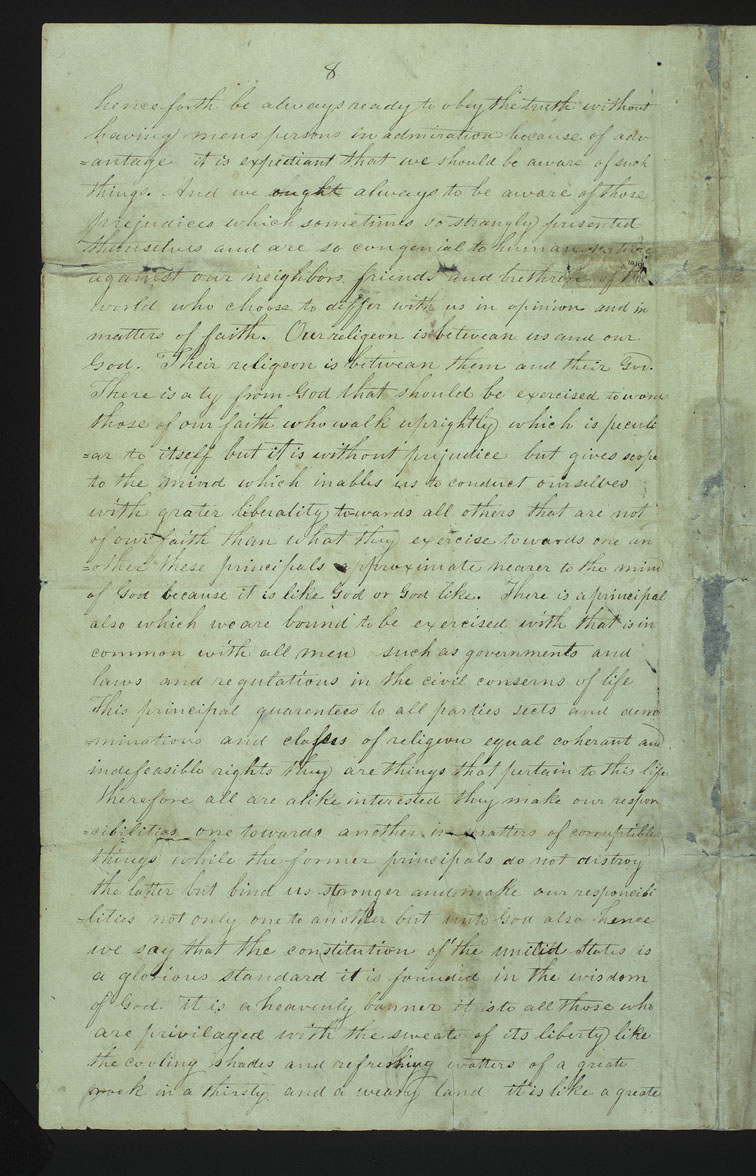 8
henceforth be always ready to obey the truth without
having mens persons in admiration because of adv
=antage it is expediant that we should be aware of such
things. And we ought always to be aware of those
prejudices which sometimes so strangly presented
themselves and are so congenial to human nature
against our neighbors friends and brethren of the
world who choose to differ with us in opinion and in
matters of faith. Our religeon is betwean us and our
God. Their religeon is betwean them and their God.
There is a ty from God that should be exercised towards
those of our faith who walk uprightly which is peculi
=ar to itself but it is without prejudice but gives scope
to the mind which inables us to conduct ourselves
with grater liberality towards all others that are not
of our faith than what they exercise towards one an
=other these principals approximate nearer to the mind
of God because it is like God or God like. There is a principal
also which we are bound to be exercised with that is in
common with all men such as governments and
laws and regulations in the civil conserns of life
This principal guarentees to all parties sects and deno
=minations and classes of religeon equal coherant and
indefeasible rights they are things that pertain to this life
therefore all are alike interested they make our respon
=sibilities one towards another in matters of corruptible
things while the former principals do not distroy
the latter but bind us stronger and make our responcibi
=lities not only one to another but unto God also hence
we say that the constitution of the unitid States is
a glorious standard it is founded in the wisdom
of God. it is a heavenly banner it is to all those who
are privilaged with the sweats of its liberty like
the cooling shades and refreshing watters of a greate
rock in a thirsty and a weary land it is like a greate